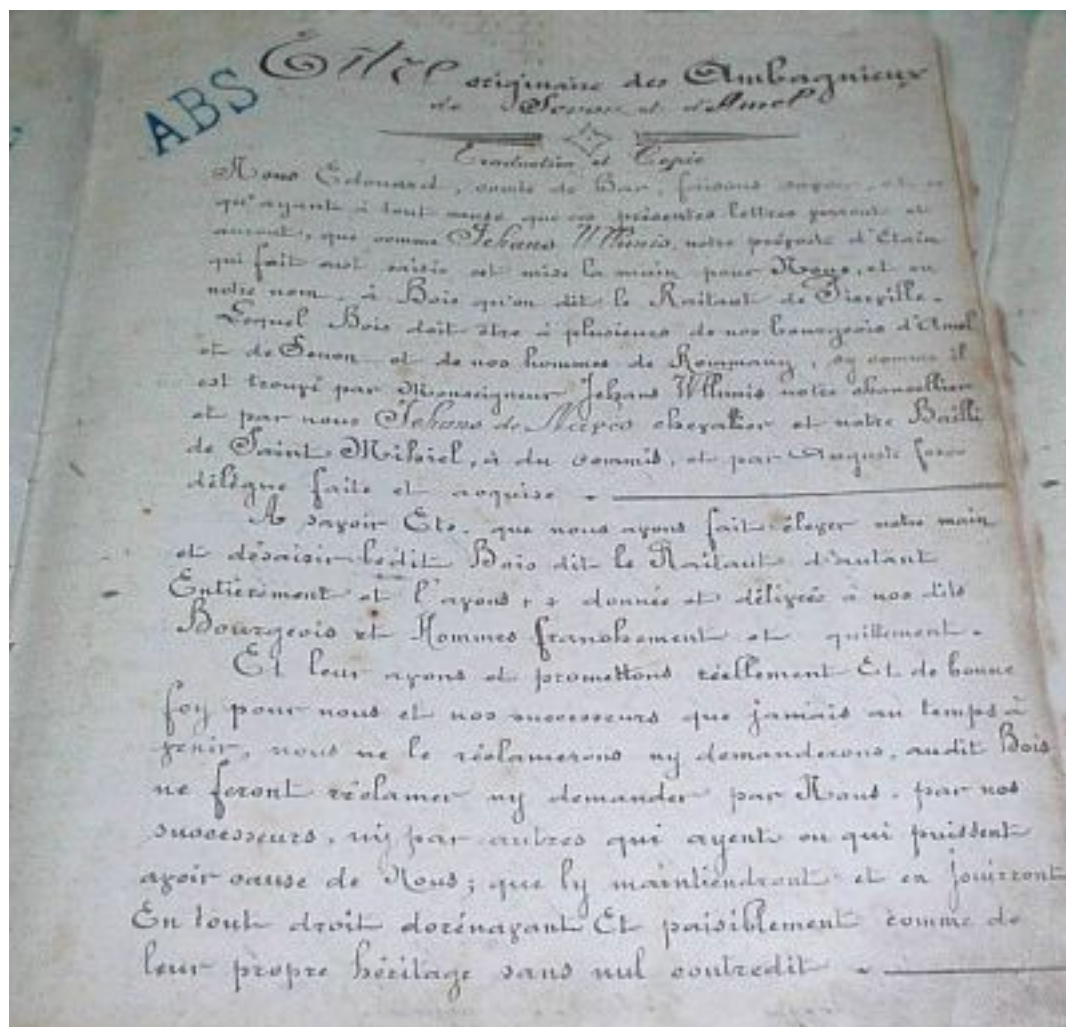 ABS
Titre originaire des Ambagnieux
de Senon et d'Amel
Traduction et Copie
Nous Edouard, comte de Bar, faisons savoir, et
qu'ayant à tout que ces présentes lettres verront et
auront, que comme Jehans Wllunis, notre prévoste d'Etain
qui fait aut saisie et mise la main pour Nous, et en
notre nom, à Bois qu'on dit le Raitant de
Lequel Bois doit être à plusieurs de nos bourgeois d'Amel
et de Senon et de nos hommes de Rommany, sy comme il
est trouvé par Monseigneur Jehans Wllunis notre chancellier
et par nous Jehans de chevalier et notre Bailli
de Saint Mihiel, à du commis, et par Auguste
délègue faite et acquise.
A savoir Ete. que nous avons fait élever notre main
et désaisir ledit Bois dit le Raitant d'autant
Entièrement et l'avons + + donnée et délivrée à nos dits
Bourgeois et Hommes franchement et quittement.
Et leur avons et promettons réellement Et de bonne
foy pour nous et nos successeurs que jamais au temps à
venir, nous ne le réclamerons ny demanderons, audit Bois
ne feront réclamer ny demander par Nous. par nos
successeurs, ny par autres qui ayent ou qui puissent
avoir cause de Nous; que ly maintiendront et en jouirront
En tout droit dorénavant Et paisiblement comme de
leur propre héritage sans nul contredit